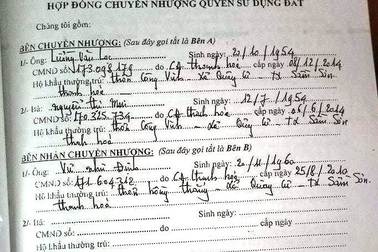 HỢP ĐỒNG CHUYỂN NHƯỢNG QUYỀN SỬ DỤNG ĐẤT
Chúng tôi gồm:
BÊN CHUYỂN NHƯỢNG: (Sau đây gọi tắt là Bên A)
1/- Ông: Lường Văn Lạc Sinh ngày: 20/10/1954
CMND số: 173.098.179 do CA thanh hóa cấp ngày 08/12/2014
Hộ khẩu thường trú: thôn Công Vinh - xã Quảng Cư - TX Sầm Sơn
thanh hóa
2/- Bà: Nguyễn Thị Mui Sinh ngày: 12/7/1954
CMND số: 170.325.734 do CA thanh hóa cấp ngày 06/6/2014
Hộ khẩu thường trú: thôn Công Vinh - xã Quảng Cư - TX Sầm Sơn
thanh hóa
BÊN NHẬN CHUYỂN NHƯỢNG: (Sau đây gọi tắt là Bên B)
1/- Ông: Vũ Như Đình Sinh ngày: 20/11/1960
CMND số: 171.604.312 do CA thanh hóa cấp ngày 25/8/2010
Hộ khẩu thường trú: thôn hồng thắng - xã Quảng Cư - TX Sầm Sơn
thanh hóa
2/- Bà: Sinh ngày:
CMND số: do cấp ngày
Hộ khẩu thường trú: